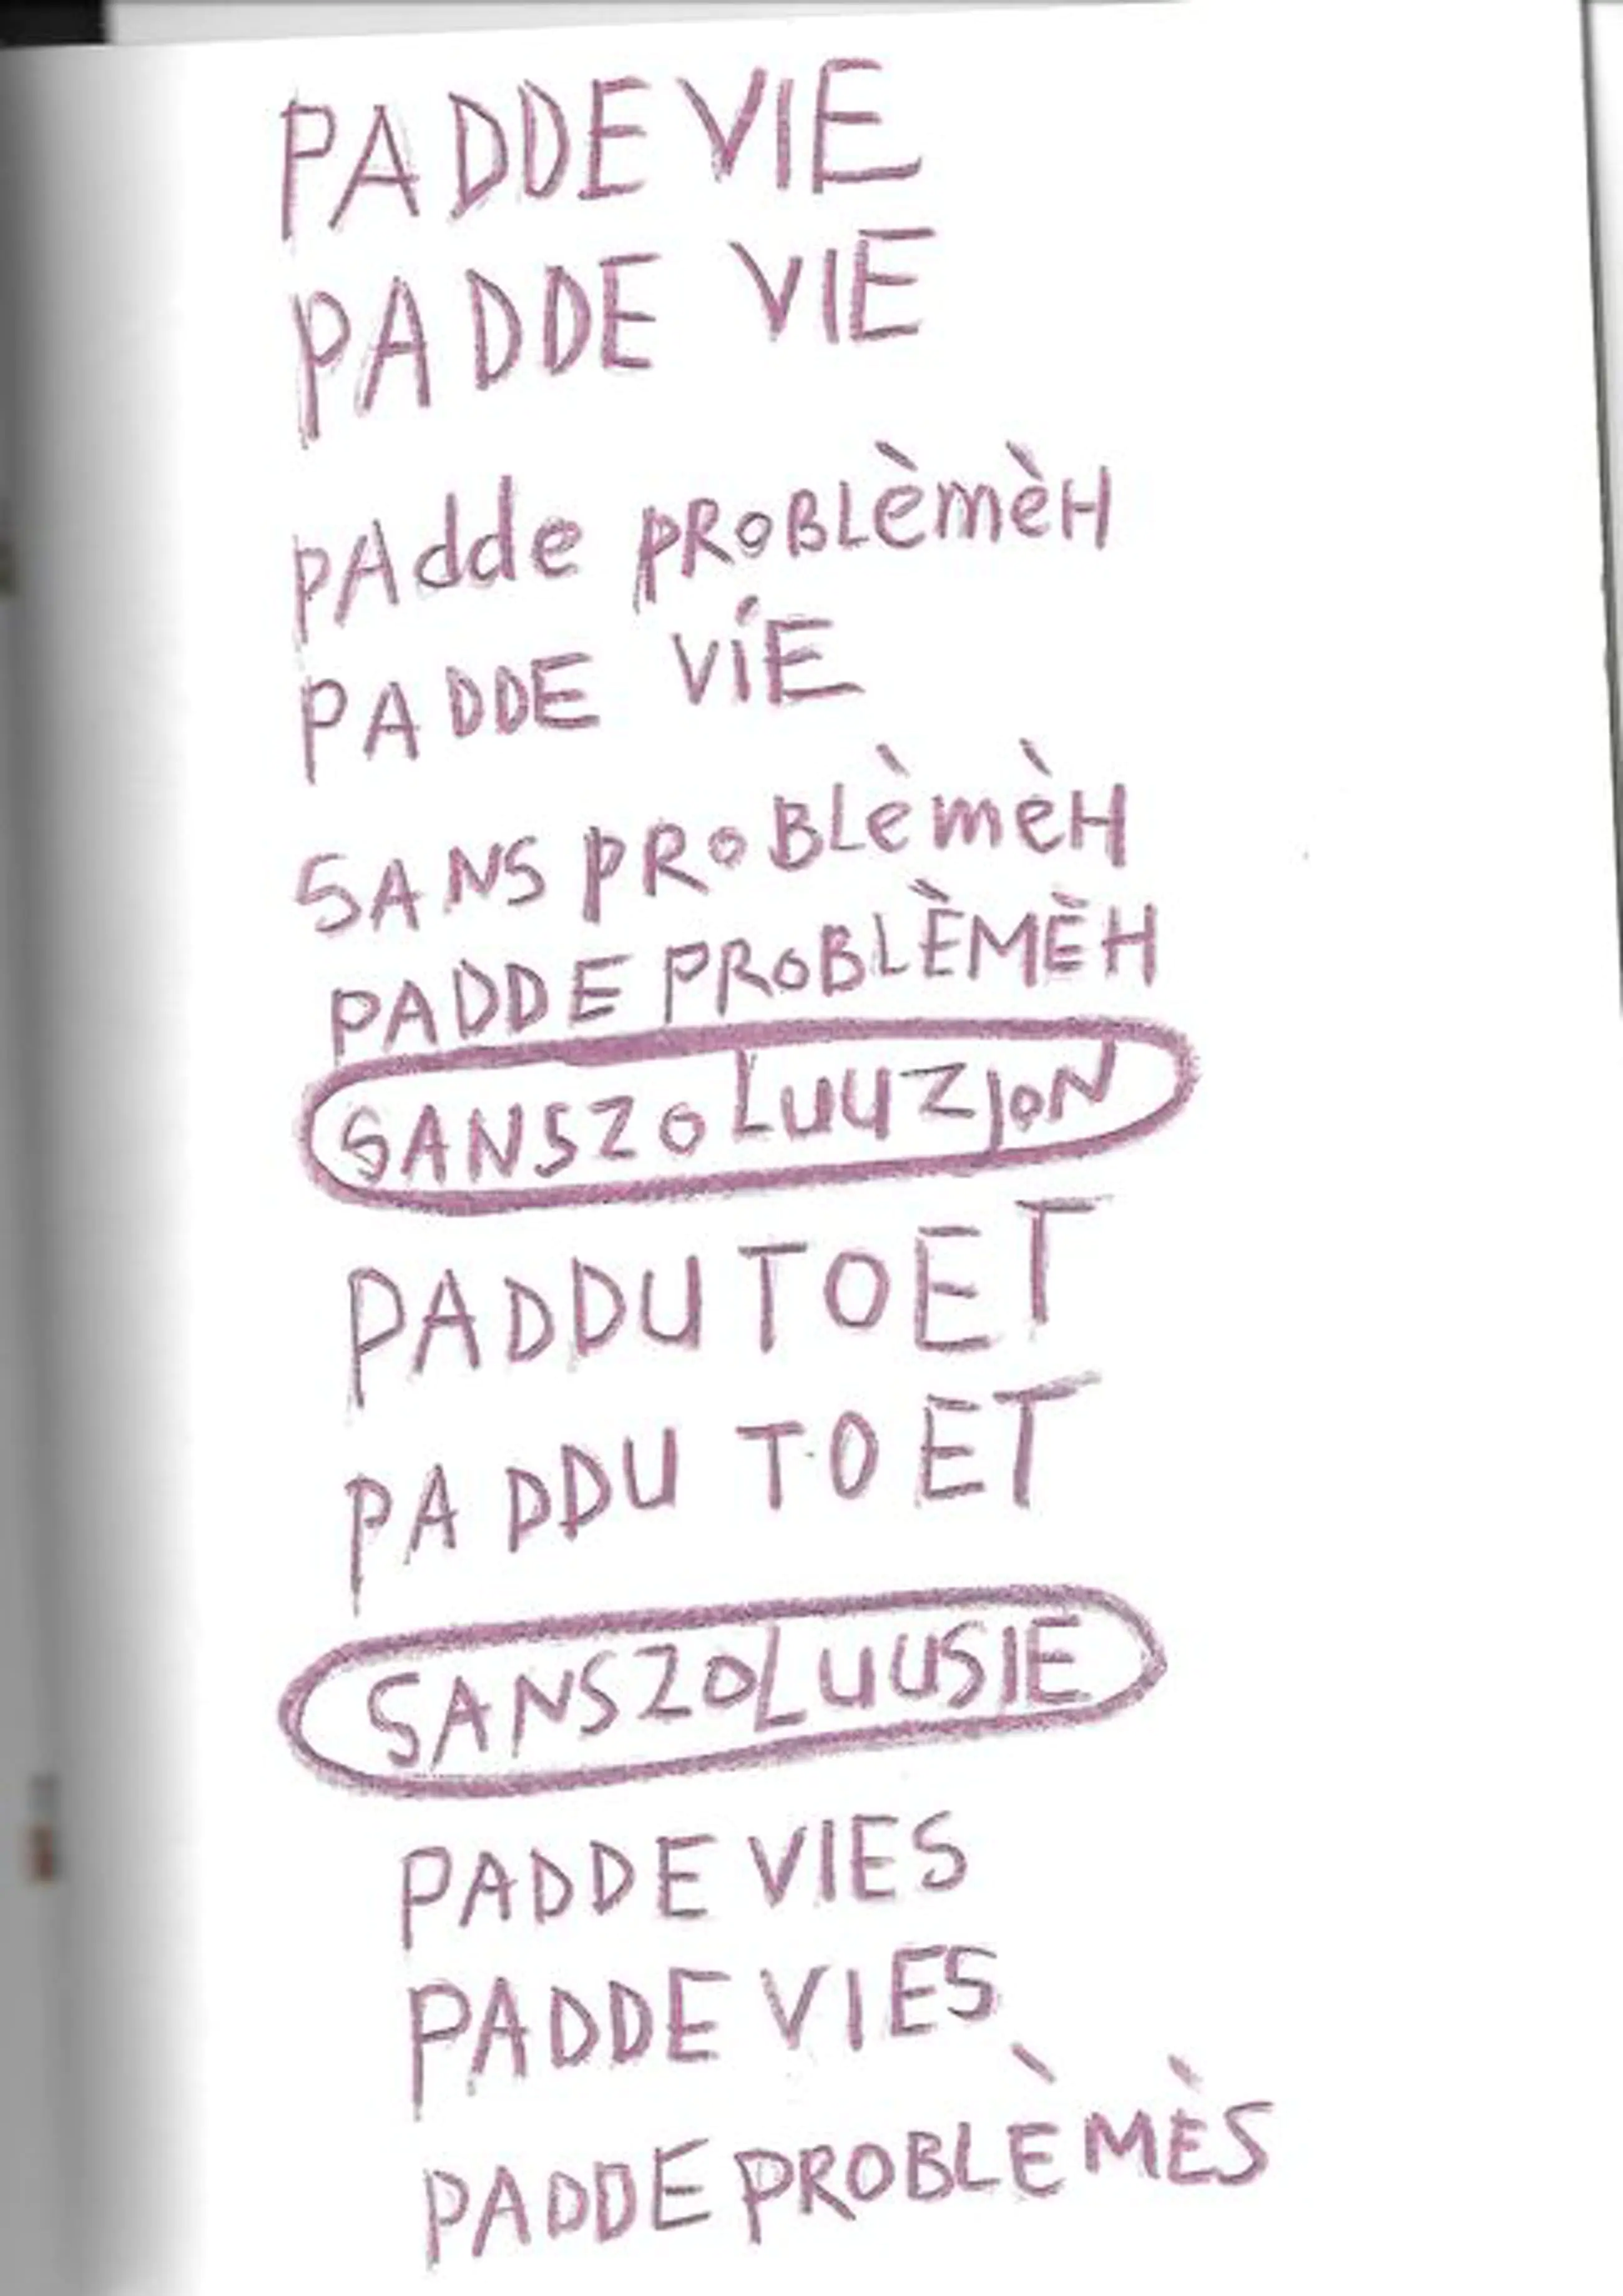 PADDE VIE
PADDE VIE
PAdde PRoBLèmèH
PADDE ViE
SANS PRoBLèmèH
PADDE PRoBLÈMÈH
SANSZoLUUZJoN
PADDU TOET
PADDU TOET
SANSZOLUUSIE
PADDE VIES
PADDE VIES
PADDE PROBLÈMÈS